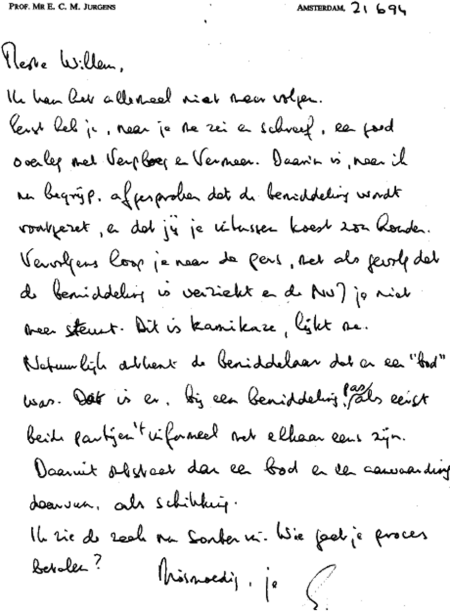 PROF. MR E. C. M. JURGENS AMSTERDAM, 21 6 94
Beste Willem,
Ik kan het allemaal niet meer volgen.
Eerst heb je, naar je me zei en schreef, een goed
overleg met Verploeg en Vermeer. Daarin is, naar ik
nu begrijp, afgesproken dat de bemiddeling wordt
voortgezet, en dat jij je intussen koest zou houden.
Vervolgens loop je naar de pers, met als gevolg dat
de bemiddeling is verziekt en de NVJ je niet
meer steunt. Dit is kamikaze, lijkt me.
Natuurlijk ontkent de bemiddelaar dat er een "bod"
was. Dat is er, bij een bemiddeling, pas als eerst
beide partijen 't informeel met elkaar eens zijn.
Daaruit ontstaat dan een bod en een aanvaarding
daarvan, als schikking.
Ik zie de zaak nu somber in. Wie gaat je proces
betalen?
Mismoedig, je